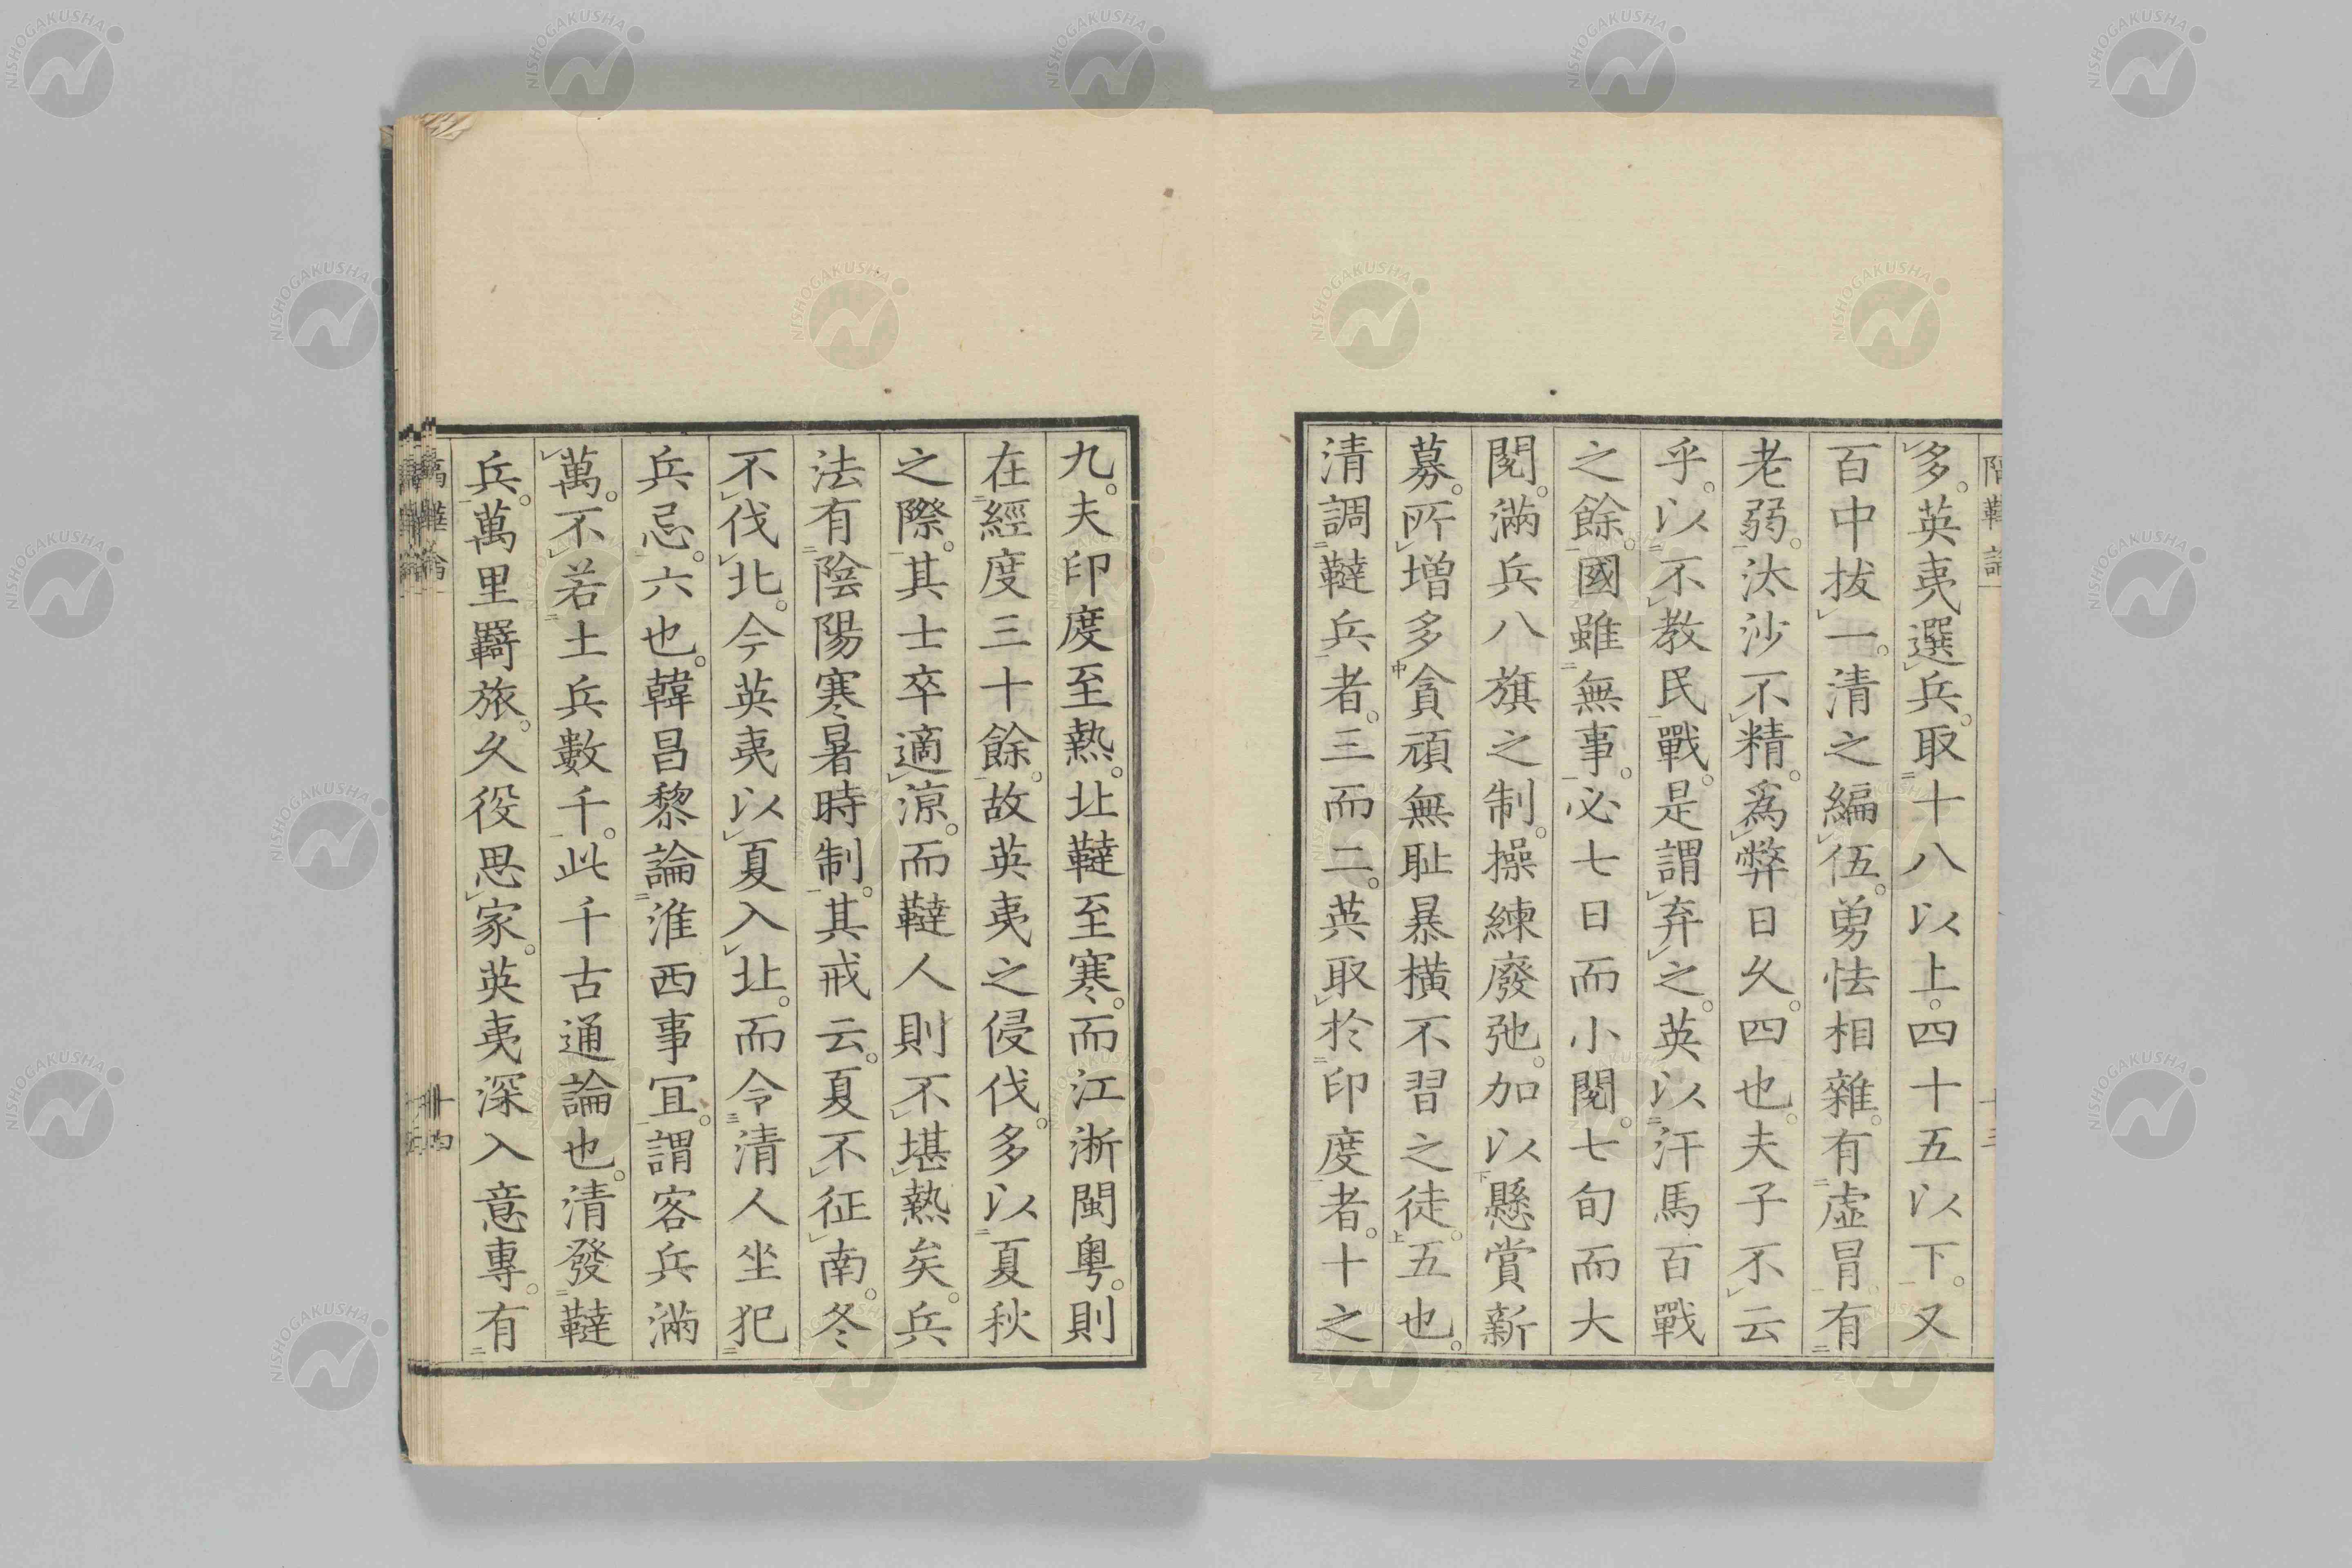 多。英夷選兵。取十八以上。四十五以下。又
百中抜一。清之編伍。勇怯相雜。有虛冒有
老弱。汰沙不精。為弊日久。四也。夫子不云
乎。以不教民戰。是謂弃之。英以汗馬百戰
之餘。國雖無事。必七日而小閱。七旬而大
閱。滿兵八旗之制。操練廢弛。加以懸賞新
募。所增多貪頑無耻暴橫不習之徒。五也。
清調韃兵者。三而二。英取於印度者。十之
九。夫印度至熱。北韃至寒。而江浙閩粤。則
在經度三十餘。故英夷之侵伐。多以夏秋
之際。其士卒適涼。而韃人則不堪熱矣。兵
法有陰陽寒暑時制。其戒云。夏不征南。冬
不伐北。今英夷以夏入北。而令清人坐犯
兵忌。六也。韓昌黎論淮西事宜。謂客兵滿
萬。不若土兵數千。此千古通論也。清發韃
兵。萬里羇旅。久役思家。英夷深入意專。有
NISHOGAKUSHA